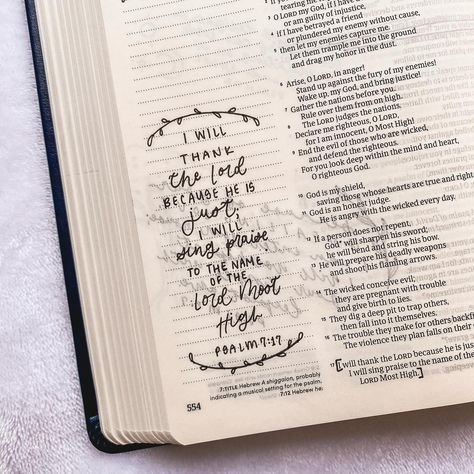 I WILL
THANK
the Lord
BECAUSE HE IS
just;
I WILL
sing praise
TO THE NAME
OF THE
Lord Most
High
PSALM 7:17
7:TITLE Hebrew A shiggaion, probably
indicating a musical setting for the psalm.
7:12 Hebrew he;
554
3 O LORD my God, if I have
or am guilty of injustice
4 if I have betrayed a friend
or plundered my enemy without cause,
5 then let my enemies capture me.
Let them trample me into the ground
and drag my honor in the dust.
6 Arise, O LORD, in anger!
Stand up against the fury of my enemies!
Wake up, my God, and bring justice!
7 Gather the nations before you.
Rule over them from on high.
8 The LORD judges the nations.
Declare me righteous, O LORD,
for I am innocent, O Most High!
9 End the evil of those who are wicked,
and defend the righteous.
For you look deep within the mind and heart,
O righteous God.
10 God is my shield,
saving those whose hearts are true and right.
11 God is an honest judge.
He is angry with the wicked every day.
12 If a person does not repent,
God* will sharpen his sword;
he will bend and string his bow.
13 He will prepare his deadly weapons
and shoot his flaming arrows.
14 The wicked conceive evil;
they are pregnant with trouble
and give birth to lies.
15 They dig a deep pit to trap others,
then fall into it themselves.
16 The trouble they make for others backfires
The violence they plan falls on their
I will thank the LORD because he is just
I will sing praise to the name of the
LORD Most High.